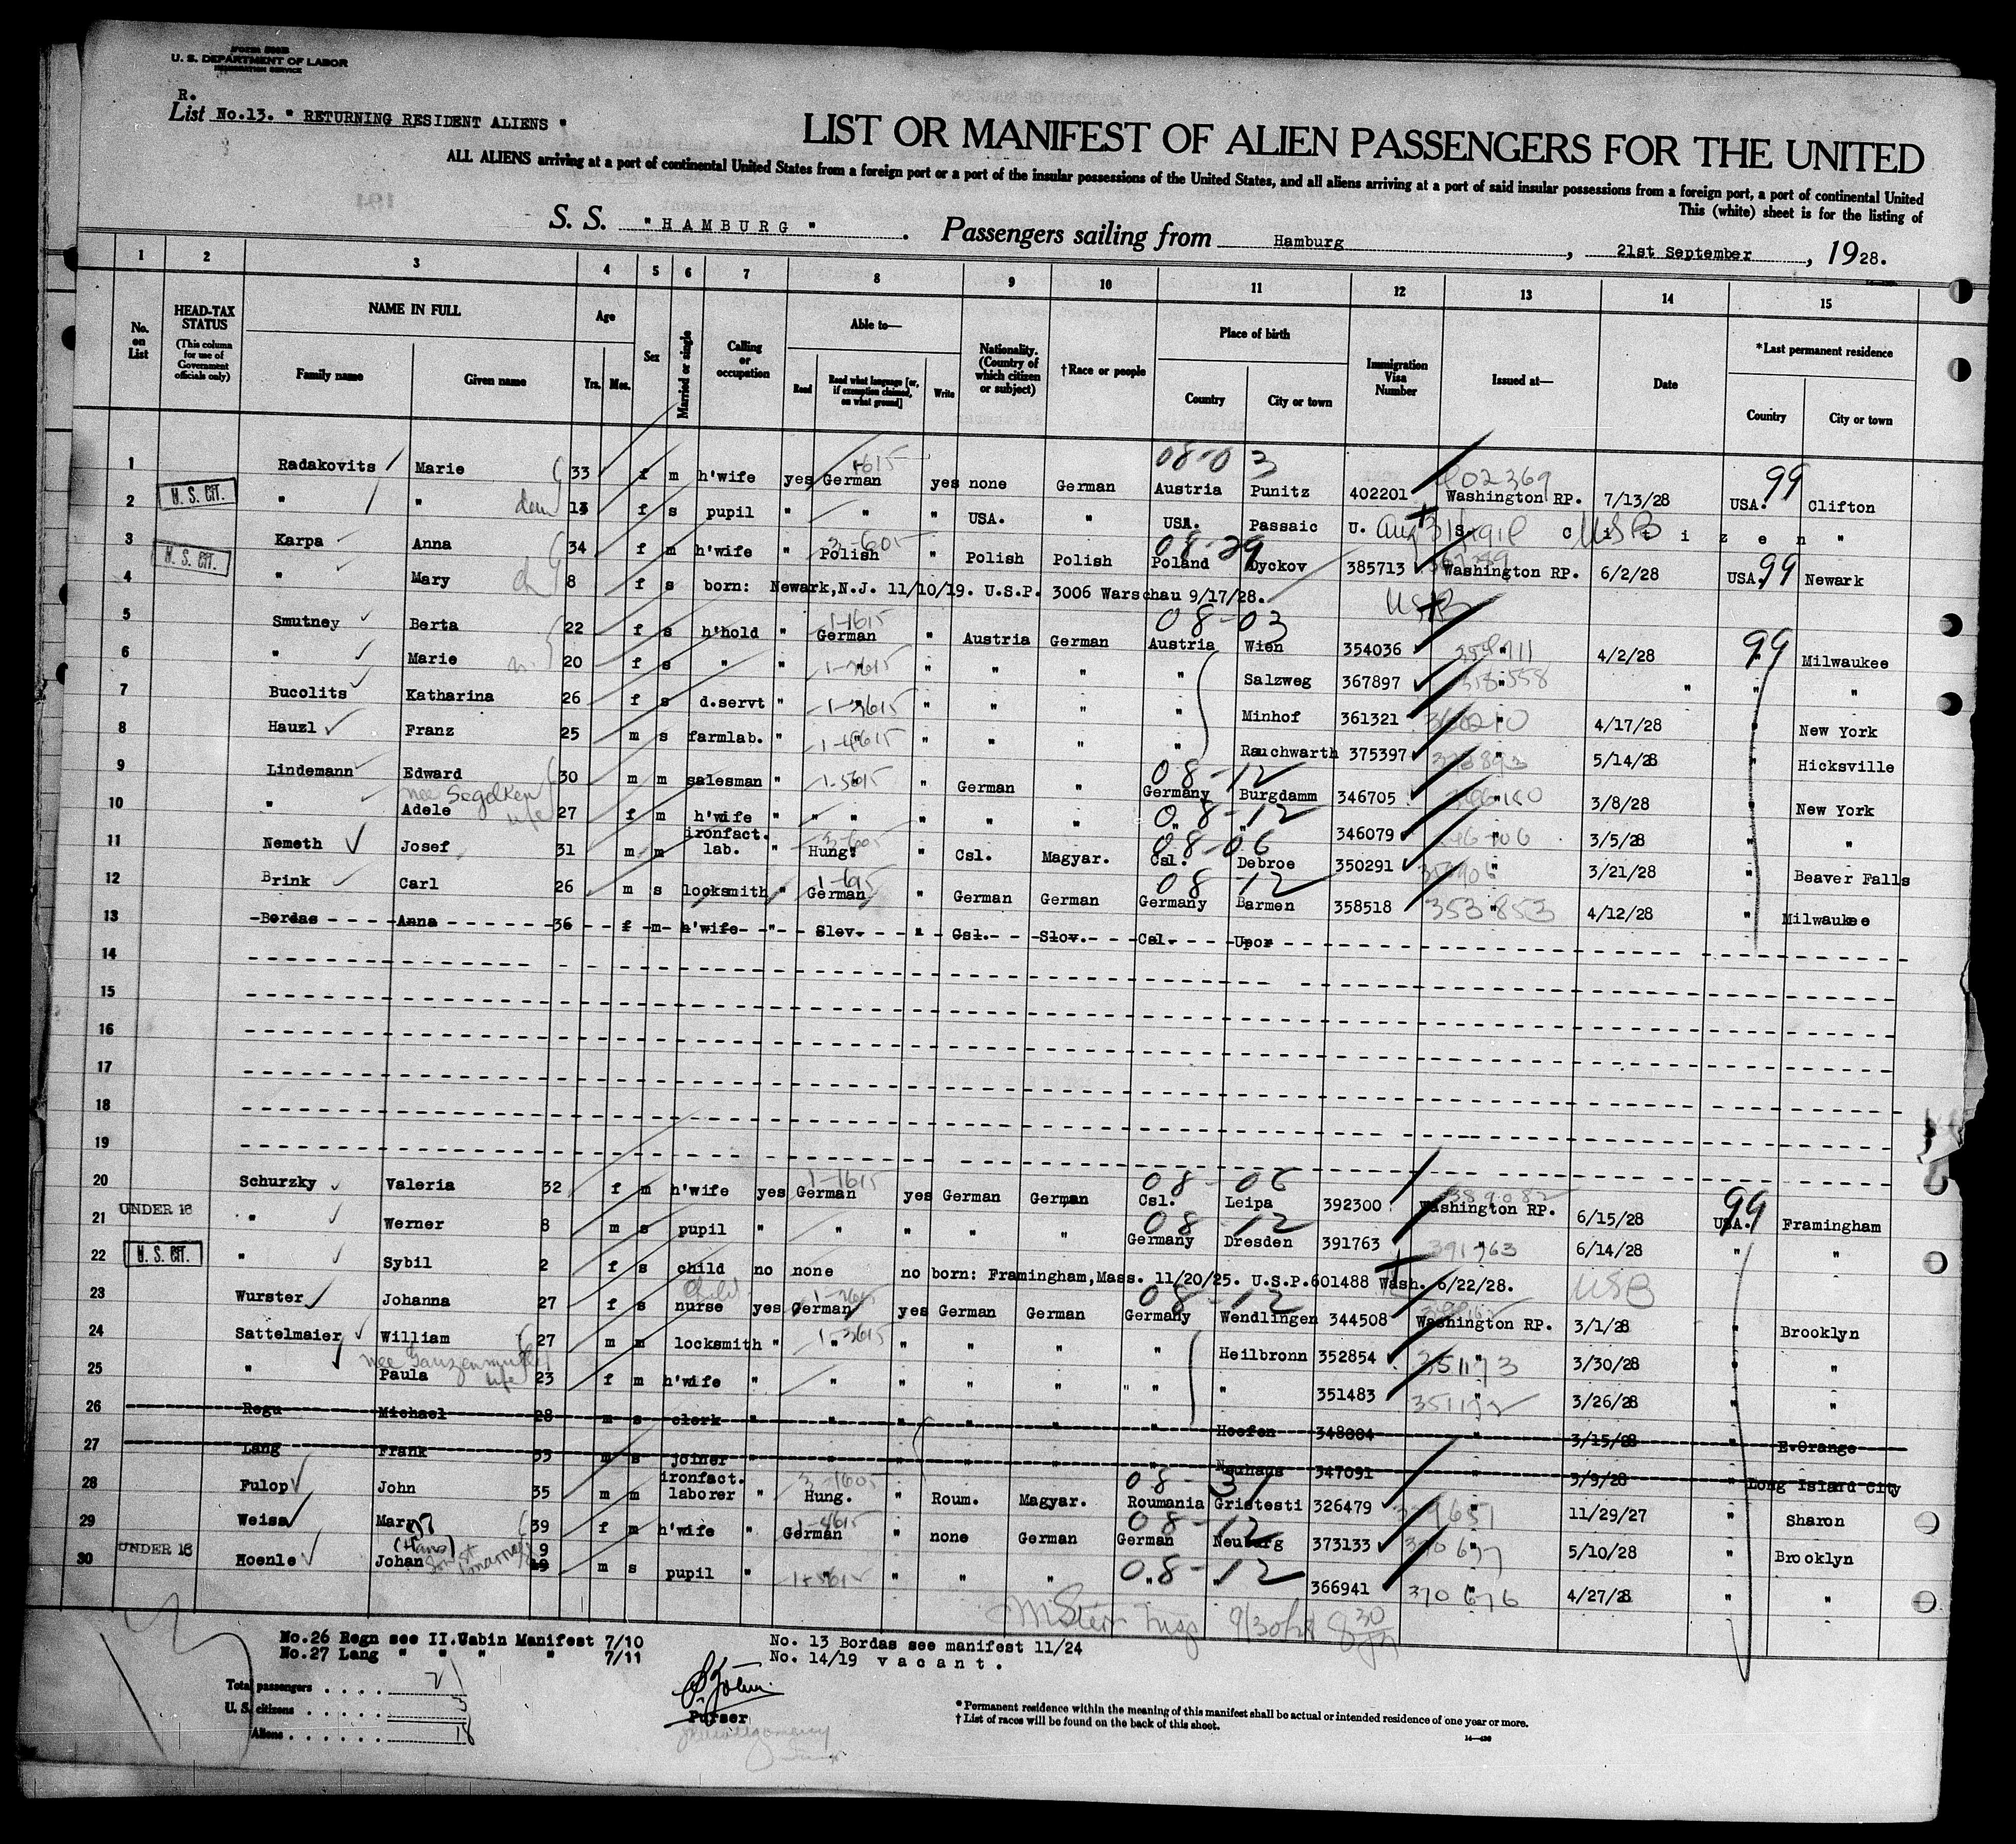 FORM 500B
U. S. DEPARTMENT OF LABOR
IMMIGRATION SERVICE
R.
List No.13. " RETURNING RESIDENT ALIENS "
LIST OR MANIFEST OF ALIEN PASSENGERS FOR THE UNITED
ALL ALIENS arriving at a port of continental United States from a foreign port or a port of the insular possessions of the United States, and all aliens arriving at a port of said insular possessions from a foreign port, a port of continental United
This (white) sheet is for the listing of
S. S. " H A M B U R G " . Passengers sailing from Hamburg , 21st September , 1928.
1 2 3 4 5 6 7 8 9 10 11 12 13 14 15
No. on List
HEAD-TAX STATUS (This column for use of Government officials only)
NAME IN FULL Family name Given name
Age Yrs. Mos.
Sex
Married or single
Calling or occupation
Able to— Read Read what language [or, if exemption claimed, on what ground] Write
Nationality. (Country of which citizen or subject)
†Race or people
Place of birth Country City or town
Immigration Visa Number
Issued at—
Date
*Last permanent residence Country City or town
1 Radakovits Marie 33 f m h'wife yes German 1615 yes none German 08-03 Austria Punitz 402201 402369 Washington RP. 7/13/28 USA. 99 Clifton
2 U. S. CIT. " " dau f s pupil " " " USA. " USA. Passaic U. S. C i t i z e n USB "
3 Karpa Anna 34 f m h'wife " Polish " Polish Polish 08-29 Poland Dyckov 385713 Washington RP. 6/2/28 USA. 99 Newark
4 U. S. CIT. " Mary 8 f s born: Newark,N.J. 11/10/19. U.S.P. 3006 Warschau 9/17/28. USB
5 Smutney Berta 22 f s h'hold " 1-1615 German " Austria German 08-03 Austria Wien 354036 " 4/2/28 99 Milwaukee
6 " Marie 20 f s " " " " " " " Salzweg 367897 " " " "
7 Bucolits Katharina 26 f s d.servt " " " " " " Minhof 361321 " 4/17/28 " New York
8 Hauzl Franz 25 m s farmlab. " " " " " " Rauchwarth 375397 " 5/14/28 " Hicksville
9 Lindemann Edward 30 m m salesman " " " German " 08-12 Germany Burgdamm 346705 " 3/8/28 " New York
nee Segelken
10 " Adele wife 27 f m h'wife " " " " " 08-12 " " 346079 " 3/5/28 " "
11 Nemeth Josef 31 m m ironfact. lab. " Hung. " Csl. Magyar. 08-06 Csl. Debroe 350291 " 3/21/28 " Beaver Falls
12 Brink Carl 26 m s locksmith " German " German German 08-12 Germany Barmen 358518 353853 " 4/12/28 " Milwaukee
13 Bordas Anna 36 f m h'wife " Slov. " Csl. Slov. Csl. Upor
14
15
16
17
18
19
20 Schurzky Valeria 32 f m h'wife yes German 1-1615 yes German German 08-06 Csl. Leipa 392300 389082 Washington RP. 6/15/28 USA. 99 Framingham
21 UNDER 16 " Werner 8 m s pupil " " " " " 08-12 Germany Dresden 391763 391763 " 6/14/28 " "
22 U. S. CIT. " Sybil 2 f s child no none no born: Framingham,Mass. 11/20/25. U.S.P.601488 Wash. 6/22/28. USB "
23 Wurster Johanna 27 f s Child nurse yes German yes German German 08-12 Germany Wendlingen 344508 Washington RP. 3/1/28 " Brooklyn
24 Sattelmaier William 27 m m locksmith " " 1-3615 " " " " Heilbronn 352854 351173 " 3/30/28 " "
25 " Paula wife 23 f m h'wife " " " " " " " 351483 351172 " 3/26/28 " "
26 Regn Michael 28 m s clerk " " " " " " Hoefen 348084 " 3/15/28 E.Orange
27 Lang Frank 33 m s joiner " " " " " " Neuhaus 347091 " 3/9/28 " Long Island City
28 Fulop John 35 m m ironfact. laborer " Hung. " Roum. Magyar. 08-31 Roumania Gristesti 326479 " 11/29/27 " Sharon
29 Weiss Mary 39 f m h'wife " German " none German 08-12 German Neuburg 373133 370677 " 5/10/28 " Brooklyn
30 UNDER 16 Hoenle Johan (Hans) 9 m s pupil " " " " " 08-12 " " 366941 370676 4/27/28 " "
M Stein Insp 9/30/28 8 30
No.26 Regn see II.Cabin Manifest 7/10
No.27 Lang " " " " 7/11
No. 13 Bordas see manifest 11/24
No. 14/19 v a c a n t .
Total passengers . . . . 21
U. S. citizens . . . . . 3
Aliens . . . . . . 18
Purser
* Permanent residence within the meaning of this manifest shall be actual or intended residence of one year or more.
† List of races will be found on the back of this sheet.